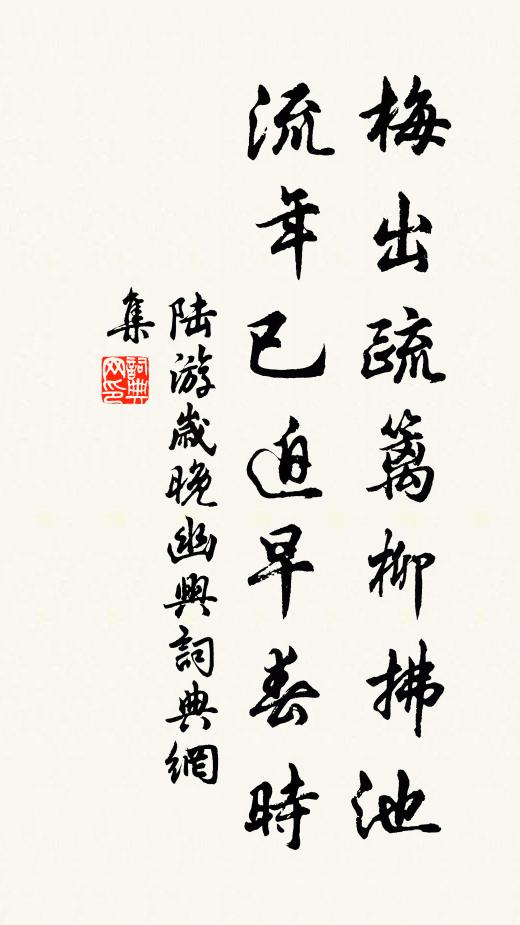 梅出疏篱柳拂池
流年已迫早春時
陆游歲晚幽興詞典網
集
詞典
网印